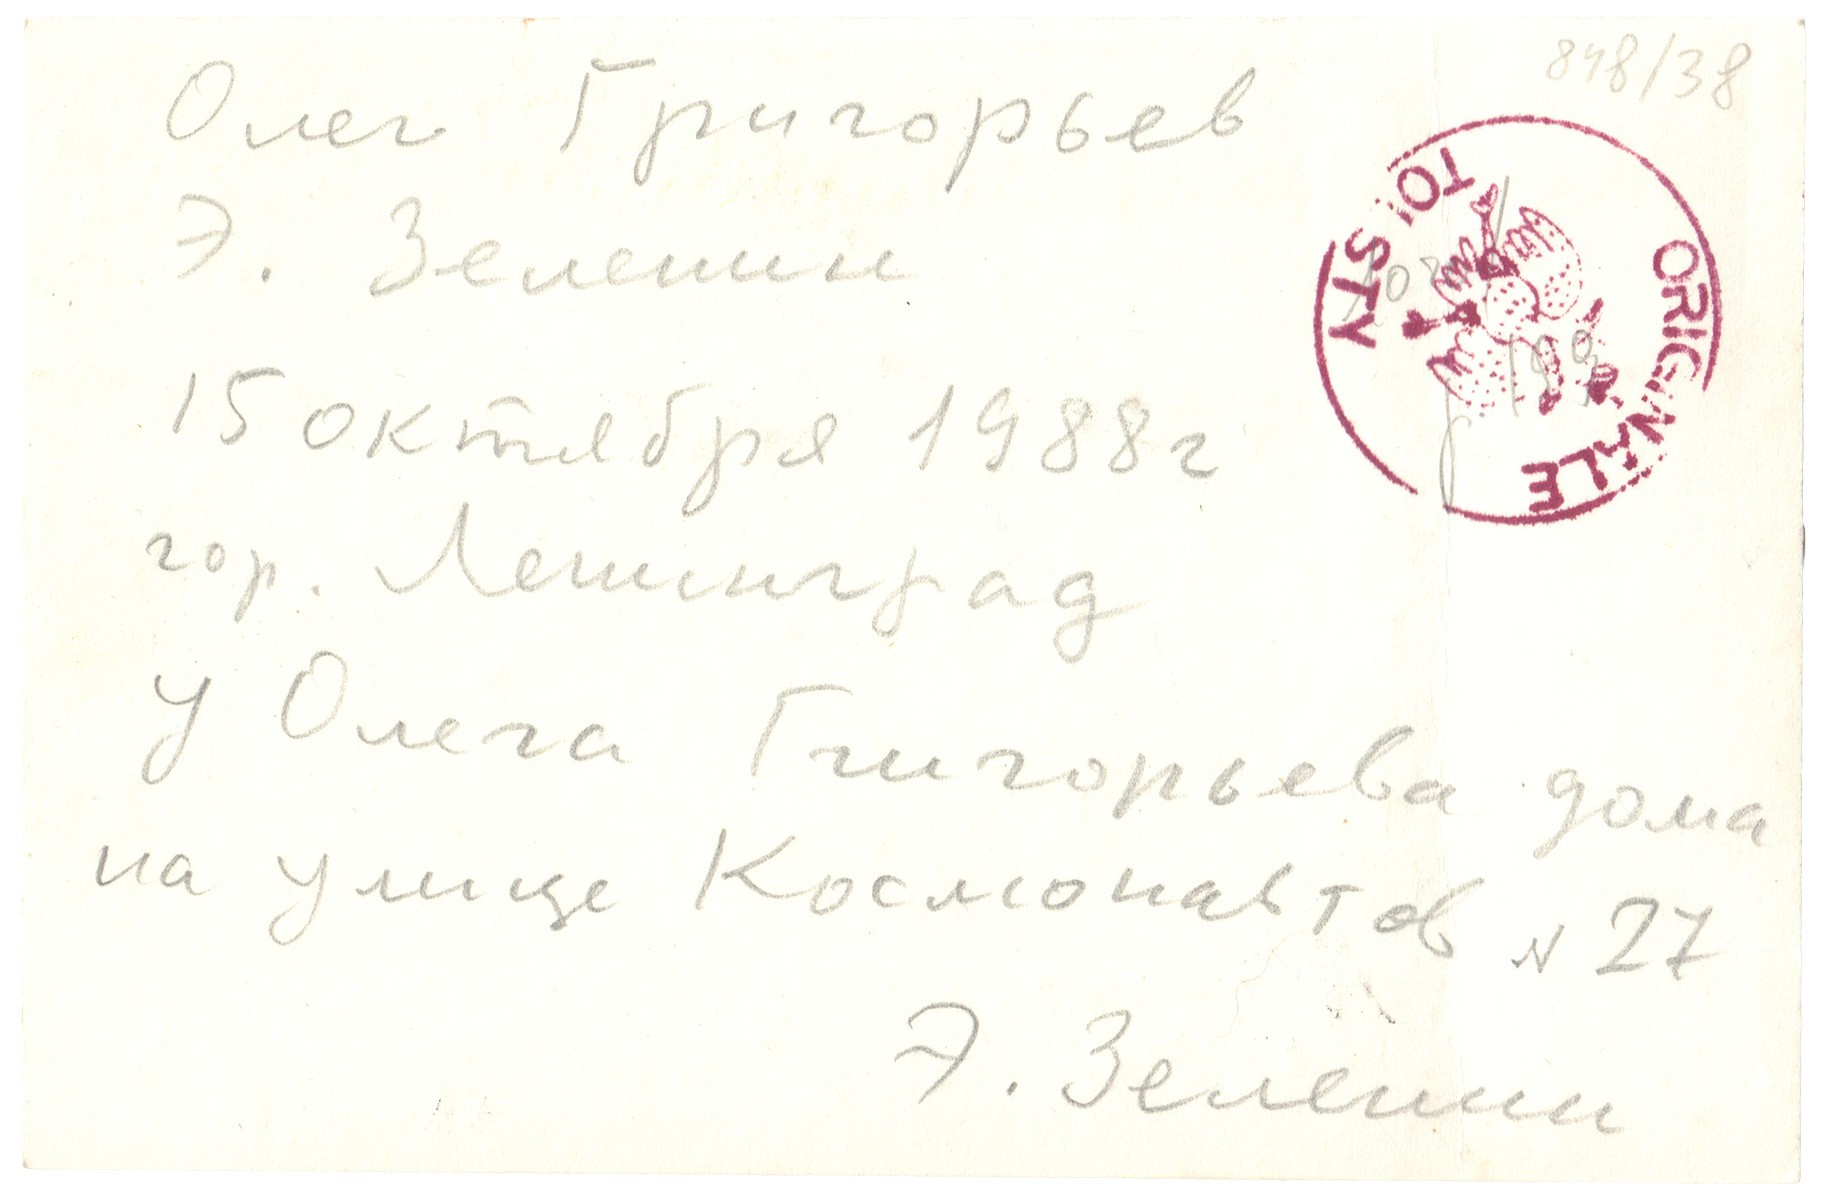 848/38
Олег Григорьев
Э. Зеленин
15 октября 1988г
гор. Ленинград
у Олега Гигорьева дома
на улице Космонавтов N 27
Э. Зеленин
TOLSTY
ORIGINALE